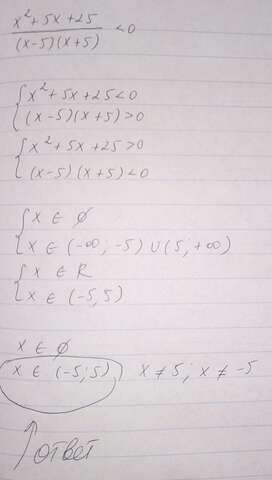 x²+5x+25 / (x-5)(x+5) <0
{ x²+5x+25<0
{ (x-5)(x+5)>0
{ x²+5x+25>0
{ (x-5)(x+5)<0
{ x ∈ ∅
{ x ∈ (-∞; -5) ∪ (5; +∞)
{ x ∈ R
{ x ∈ (-5;5)
x ∈ ∅
x ∈ (-5;5) x ≠ 5; x ≠ -5
ответ